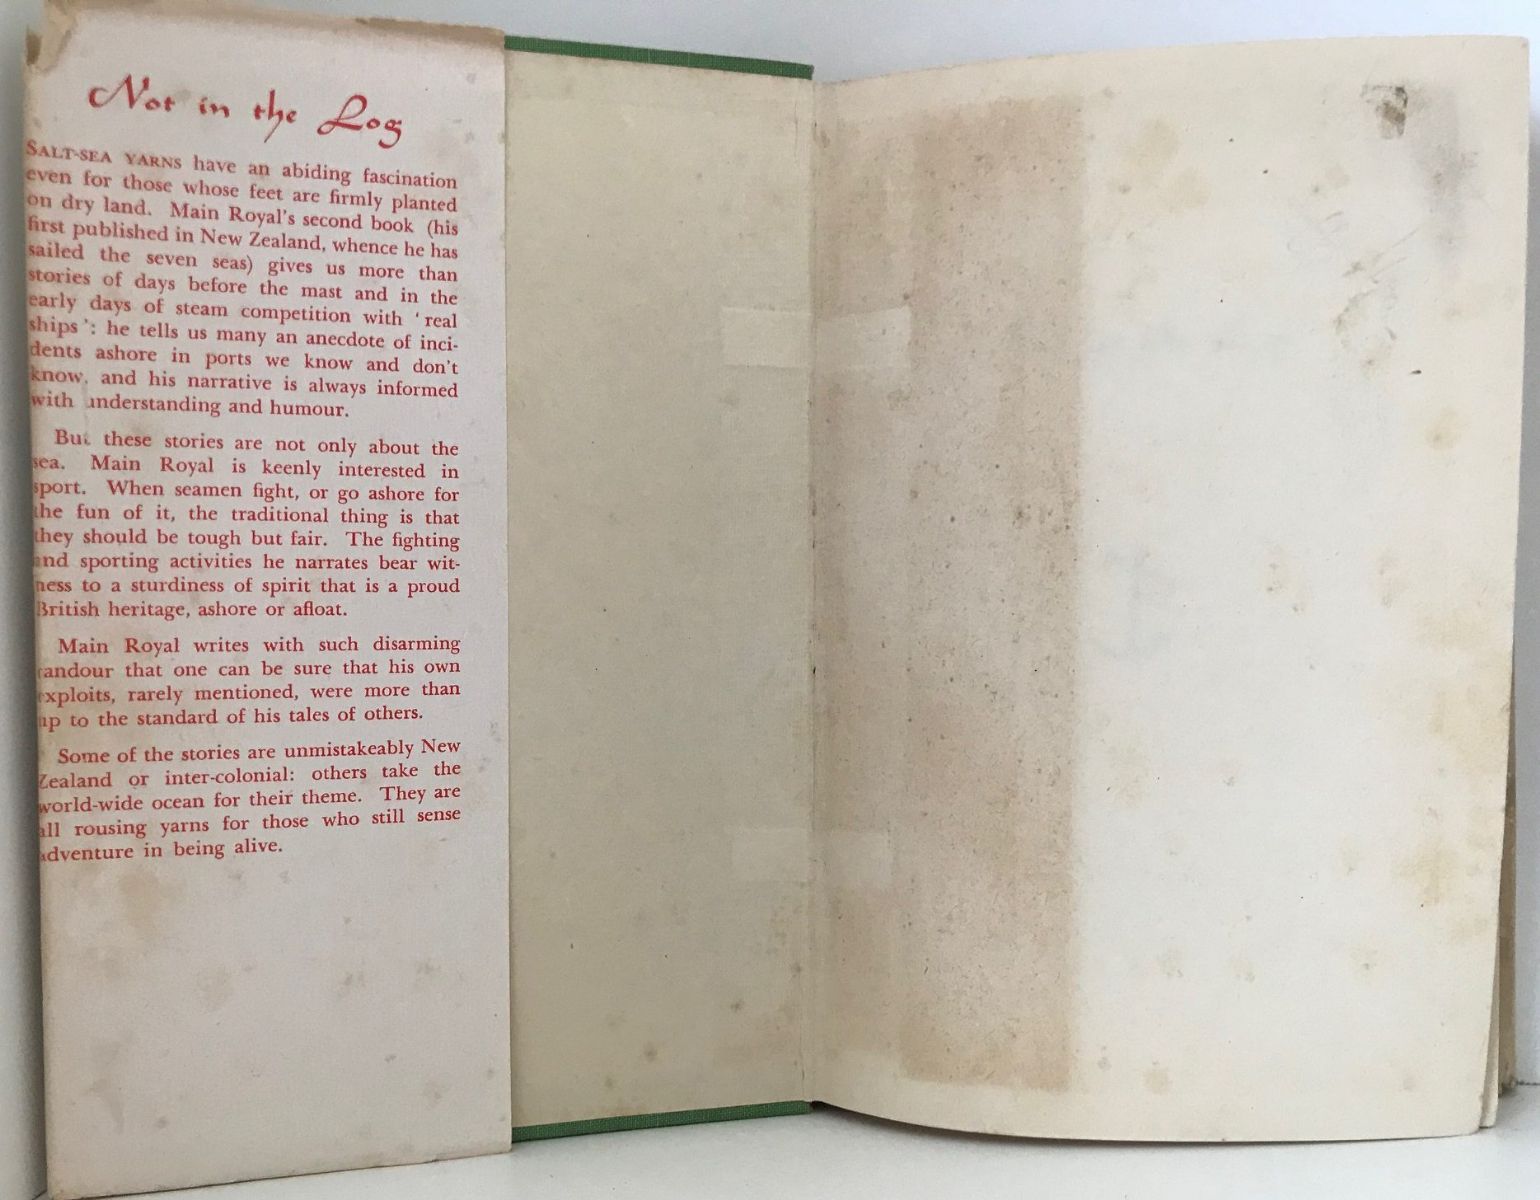 Not in the Log
SALT-SEA YARNS have an abiding fascination
even for those whose feet are firmly planted
on dry land. Main Royal's second book (his
first published in New Zealand, whence he has
sailed the seven seas) gives us more than
stories of days before the mast and in the
early days of steam competition with 'real
ships': he tells us many an anecdote of inci-
dents ashore in ports we know and don't
know, and his narrative is always informed
with understanding and humour.
But these stories are not only about the
sea. Main Royal is keenly interested in
sport. When seamen fight, or go ashore for
the fun of it, the traditional thing is that
they should be tough but fair. The fighting
and sporting activities he narrates bear wit-
ness to a sturdiness of spirit that is a proud
British heritage, ashore or afloat.
Main Royal writes with such disarming
candour that one can be sure that his own
exploits, rarely mentioned, were more than
up to the standard of his tales of others.
Some of the stories are unmistakeably New
Zealand or inter-colonial: others take the
world-wide ocean for their theme. They are
all rousing yarns for those who still sense
adventure in being alive.